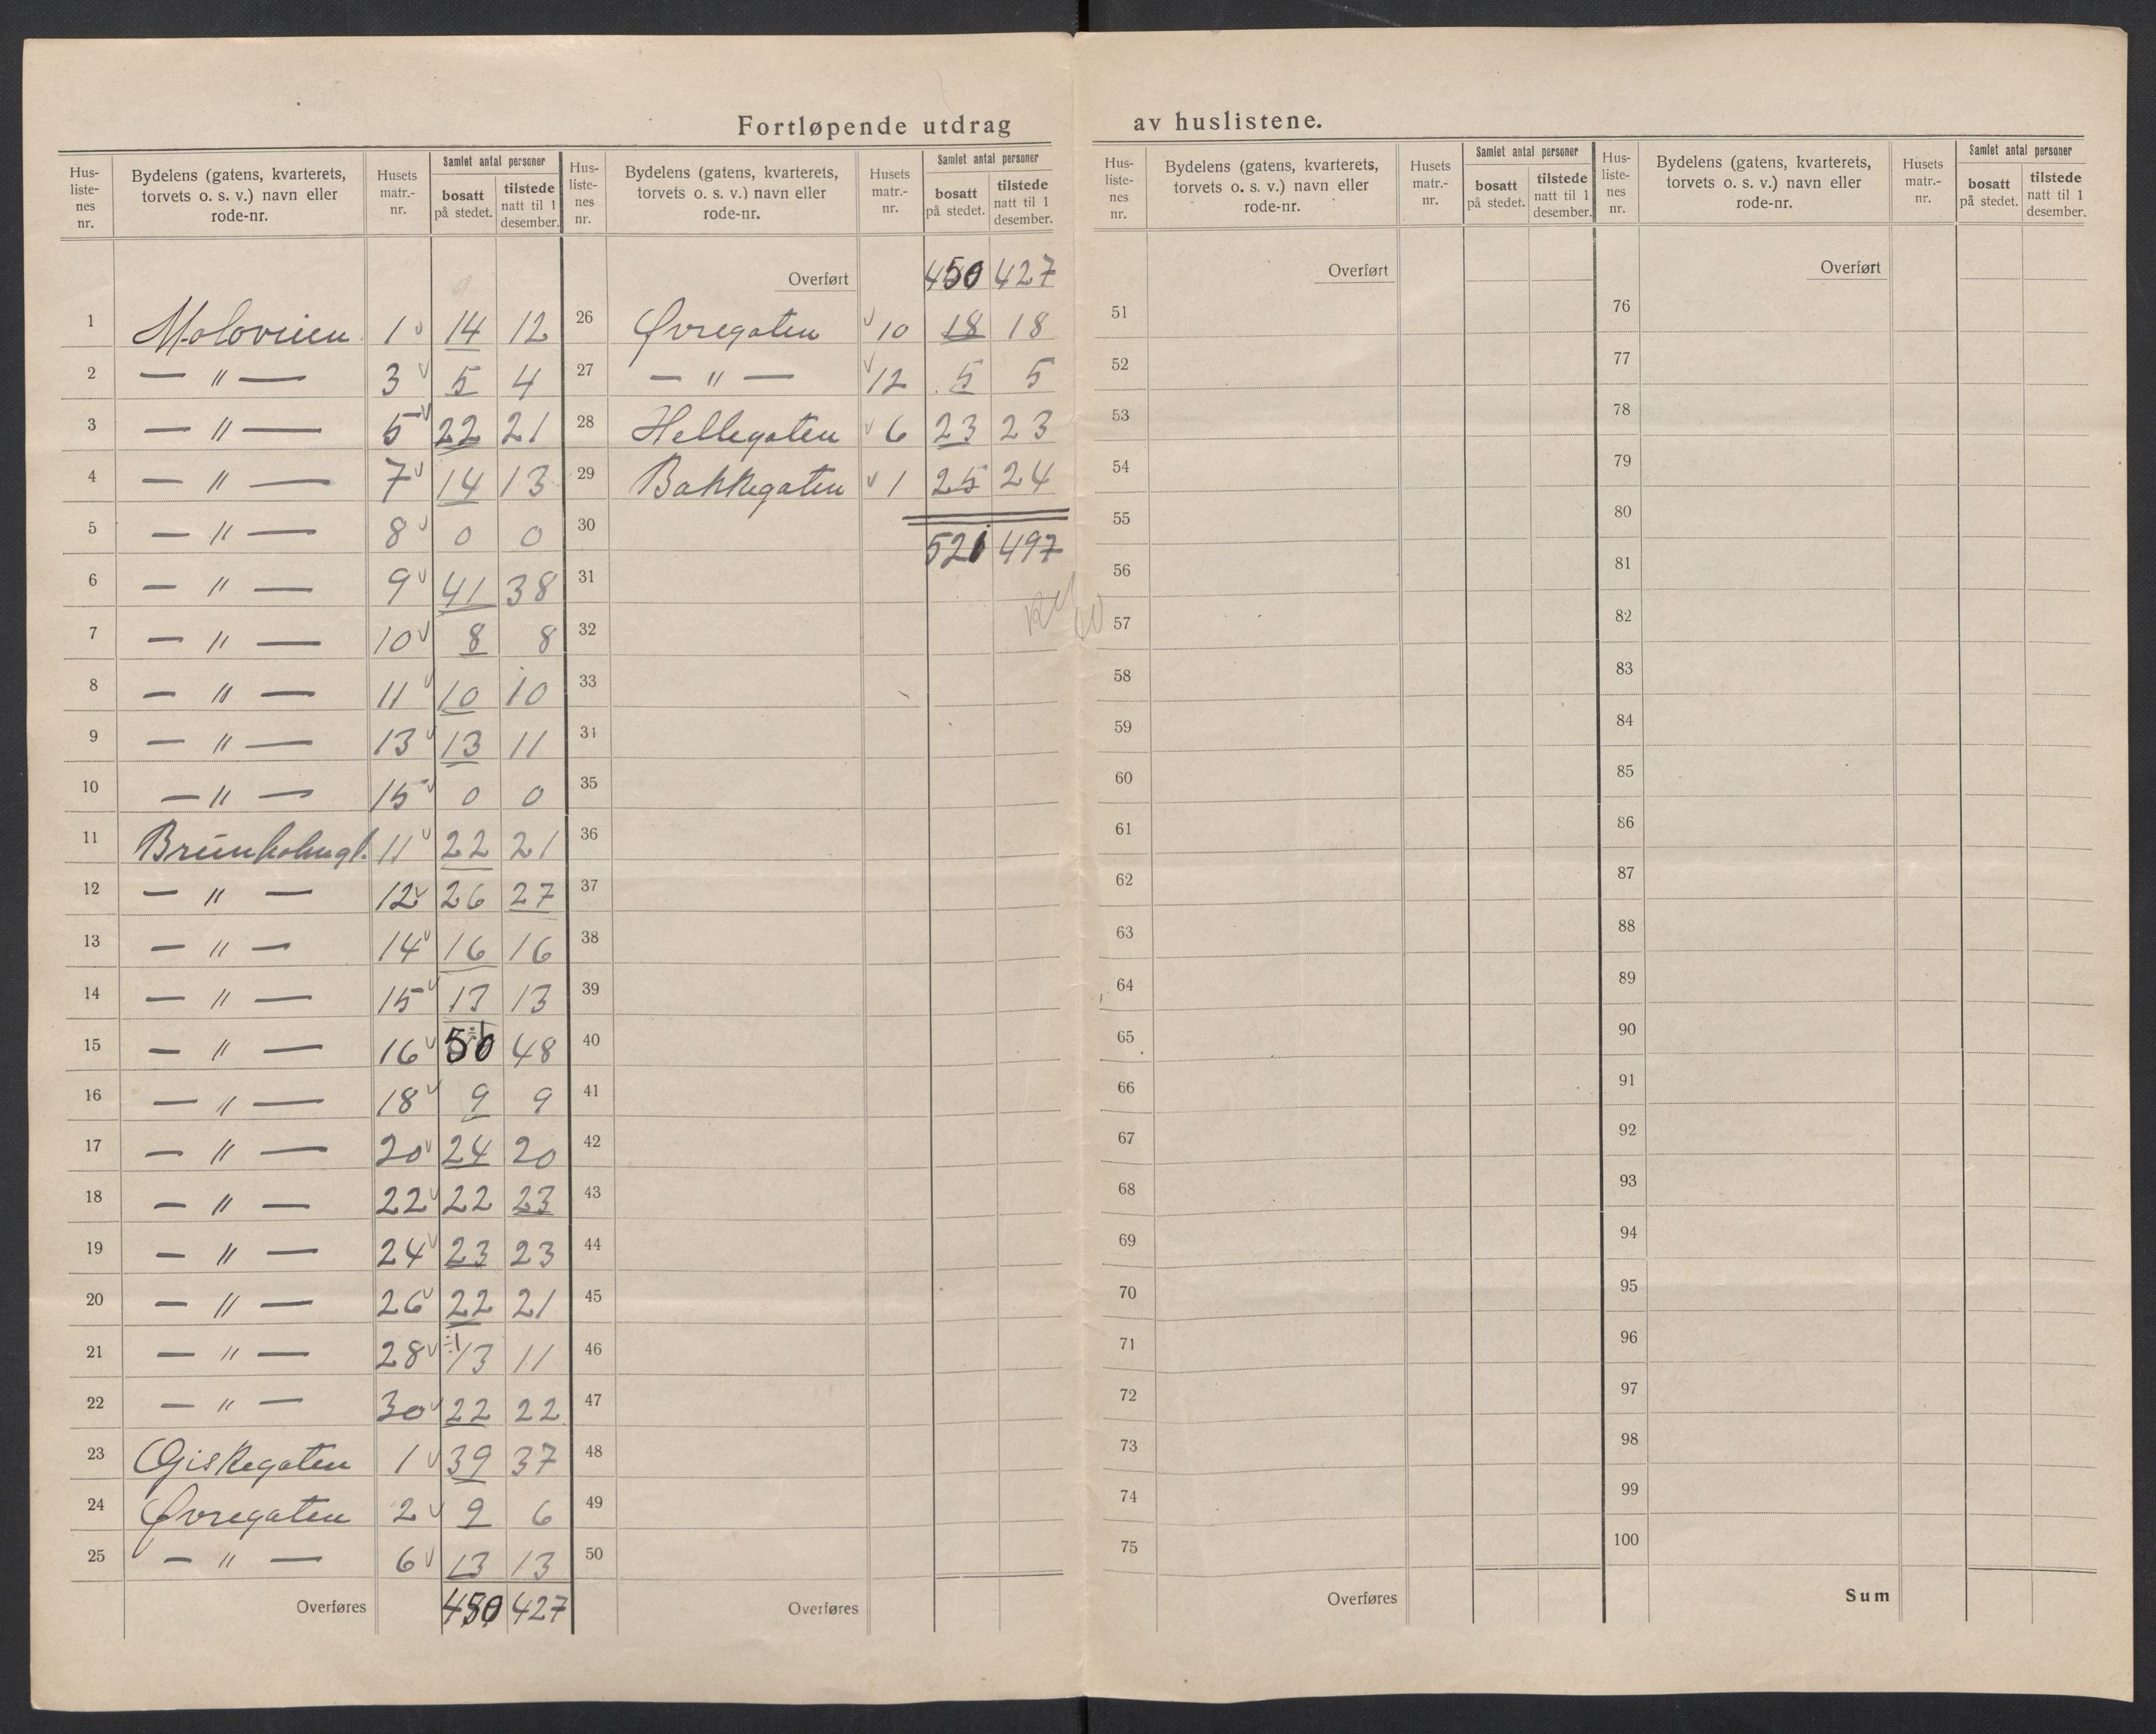 Fortløpende utdrag av huslistene.
Hus-listenes nr. | Bydelens (gatens, kvarterets, torvets o. s. v.) navn eller rode-nr. | Husets matr.-nr. | Samlet antal personer: bosatt på stedet. | tilstede natt til 1 desember.
1 Moloveien 1 v 14 12
2 — " — 3 v 5 4
3 — " — 5 v 22 21
4 — " — 7 v 14 13
5 — " — 8 v 0 0
6 — " — 9 v 41 38
7 — " — 10 v 8 8
8 — " — 11 v 10 10
9 — " — 13 v 13 11
10 — " — 15 v 0 0
11 Brunholmgt. 11 v 22 21
12 — " — 12 v 26 27
13 — " — 14 v 16 16
14 — " — 15 v 13 13
15 — " — 16 v 50 48
16 — " — 18 v 9 9
17 — " — 20 v 24 20
18 — " — 22 v 22 23
19 — " — 24 v 23 23
20 — " — 26 v 22 21
21 — " — 28 v ÷1 13 11
22 — " — 30 v 22 22
23 Giskegaten 1 v 39 37
24 Øvregaten 2 v 9 6
25 — " — 6 v 13 13
Overføres 450 427
Hus-listenes nr. | Bydelens (gatens, kvarterets, torvets o. s. v.) navn eller rode-nr. | Husets matr.-nr. | Samlet antal personer: bosatt på stedet. | tilstede natt til 1 desember.
Overført 450 427
26 Øvregaten v 10 18 18
27 — " — v 12 5 5
28 Hellegaten v 6 23 23
29 Bakkegaten v 1 25 24
30 521 497
31
32
33
34
35
36
37
38
39
40
41
42
43
44
45
46
47
48
49
50
Overføres
Hus-listenes nr. | Bydelens (gatens, kvarterets, torvets o. s. v.) navn eller rode-nr. | Husets matr.-nr. | Samlet antal personer: bosatt på stedet. | tilstede natt til 1 desember.
Overført
51
52
53
54
55
56
57
58
59
60
61
62
63
64
65
66
67
68
69
70
71
72
73
74
75
Overføres
Hus-listenes nr. | Bydelens (gatens, kvarterets, torvets o. s. v.) navn eller rode-nr. | Husets matr.-nr. | Samlet antal personer: bosatt på stedet. | tilstede natt til 1 desember.
Overført
76
77
78
79
80
81
82
83
84
85
86
87
88
89
90
91
92
93
94
95
96
97
98
99
100
Sum